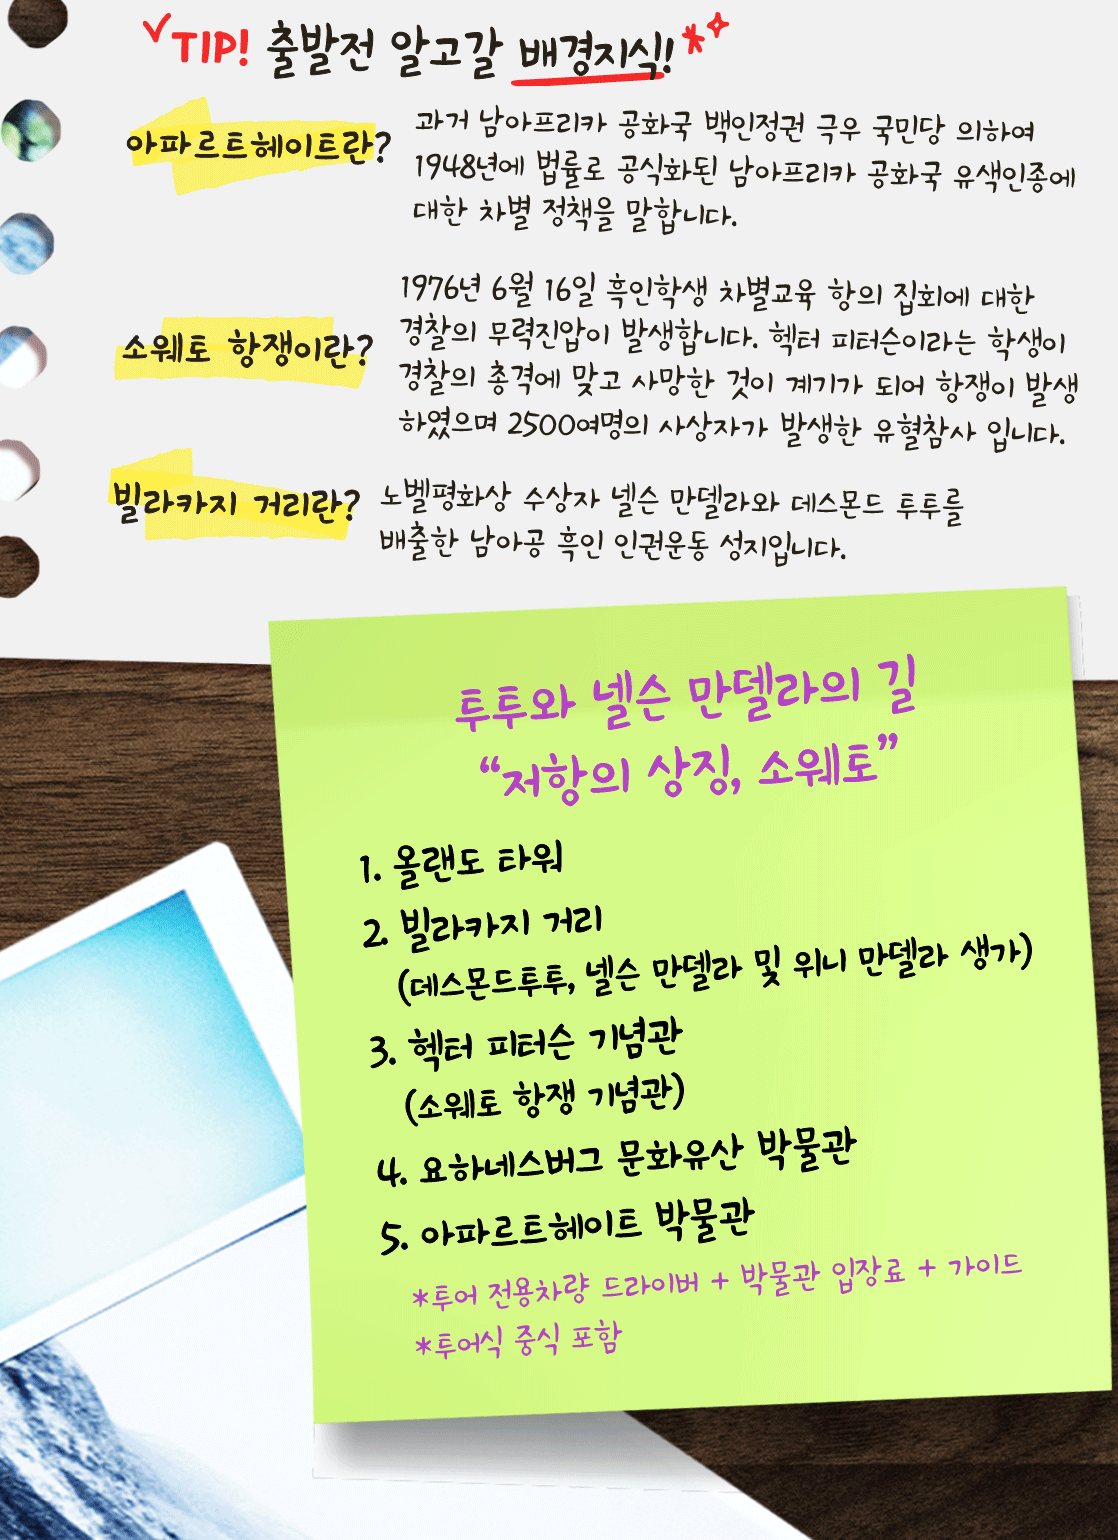 TIP! 출발전 알고갈 배경지식!
아파르트헤이트란?
과거 남아프리카 공화국 백인정권 극우 국민당 의하여
1948년에 법률로 공식화된 남아프리카 공화국 유색인종에
대한 차별 정책을 말합니다.
소웨토 항쟁이란?
1976년 6월 16일 흑인학생 차별교육 항의 집회에 대한
경찰의 무력진압이 발생합니다. 헥터 피터슨이라는 학생이
경찰의 총격에 맞고 사망한 것이 계기가 되어 항쟁이 발생
하였으며 2500여명의 사상자가 발생한 유혈참사 입니다.
빌라카지 거리란?
노벨평화상 수상자 넬슨 만델라와 데스몬드 투투를
배출한 남아공 흑인 인권운동 성지입니다.
투투와 넬슨 만델라의 길
“저항의 상징, 소웨토”
1. 올랜도 타워
2. 빌라카지 거리
(데스몬드투투, 넬슨 만델라 및 위니 만델라 생가)
3. 헥터 피터슨 기념관
(소웨토 항쟁 기념관)
4. 요하네스버그 문화유산 박물관
5. 아파르트헤이트 박물관
*투어 전용차량 드라이버 + 박물관 입장료 + 가이드
*투어식 중식 포함